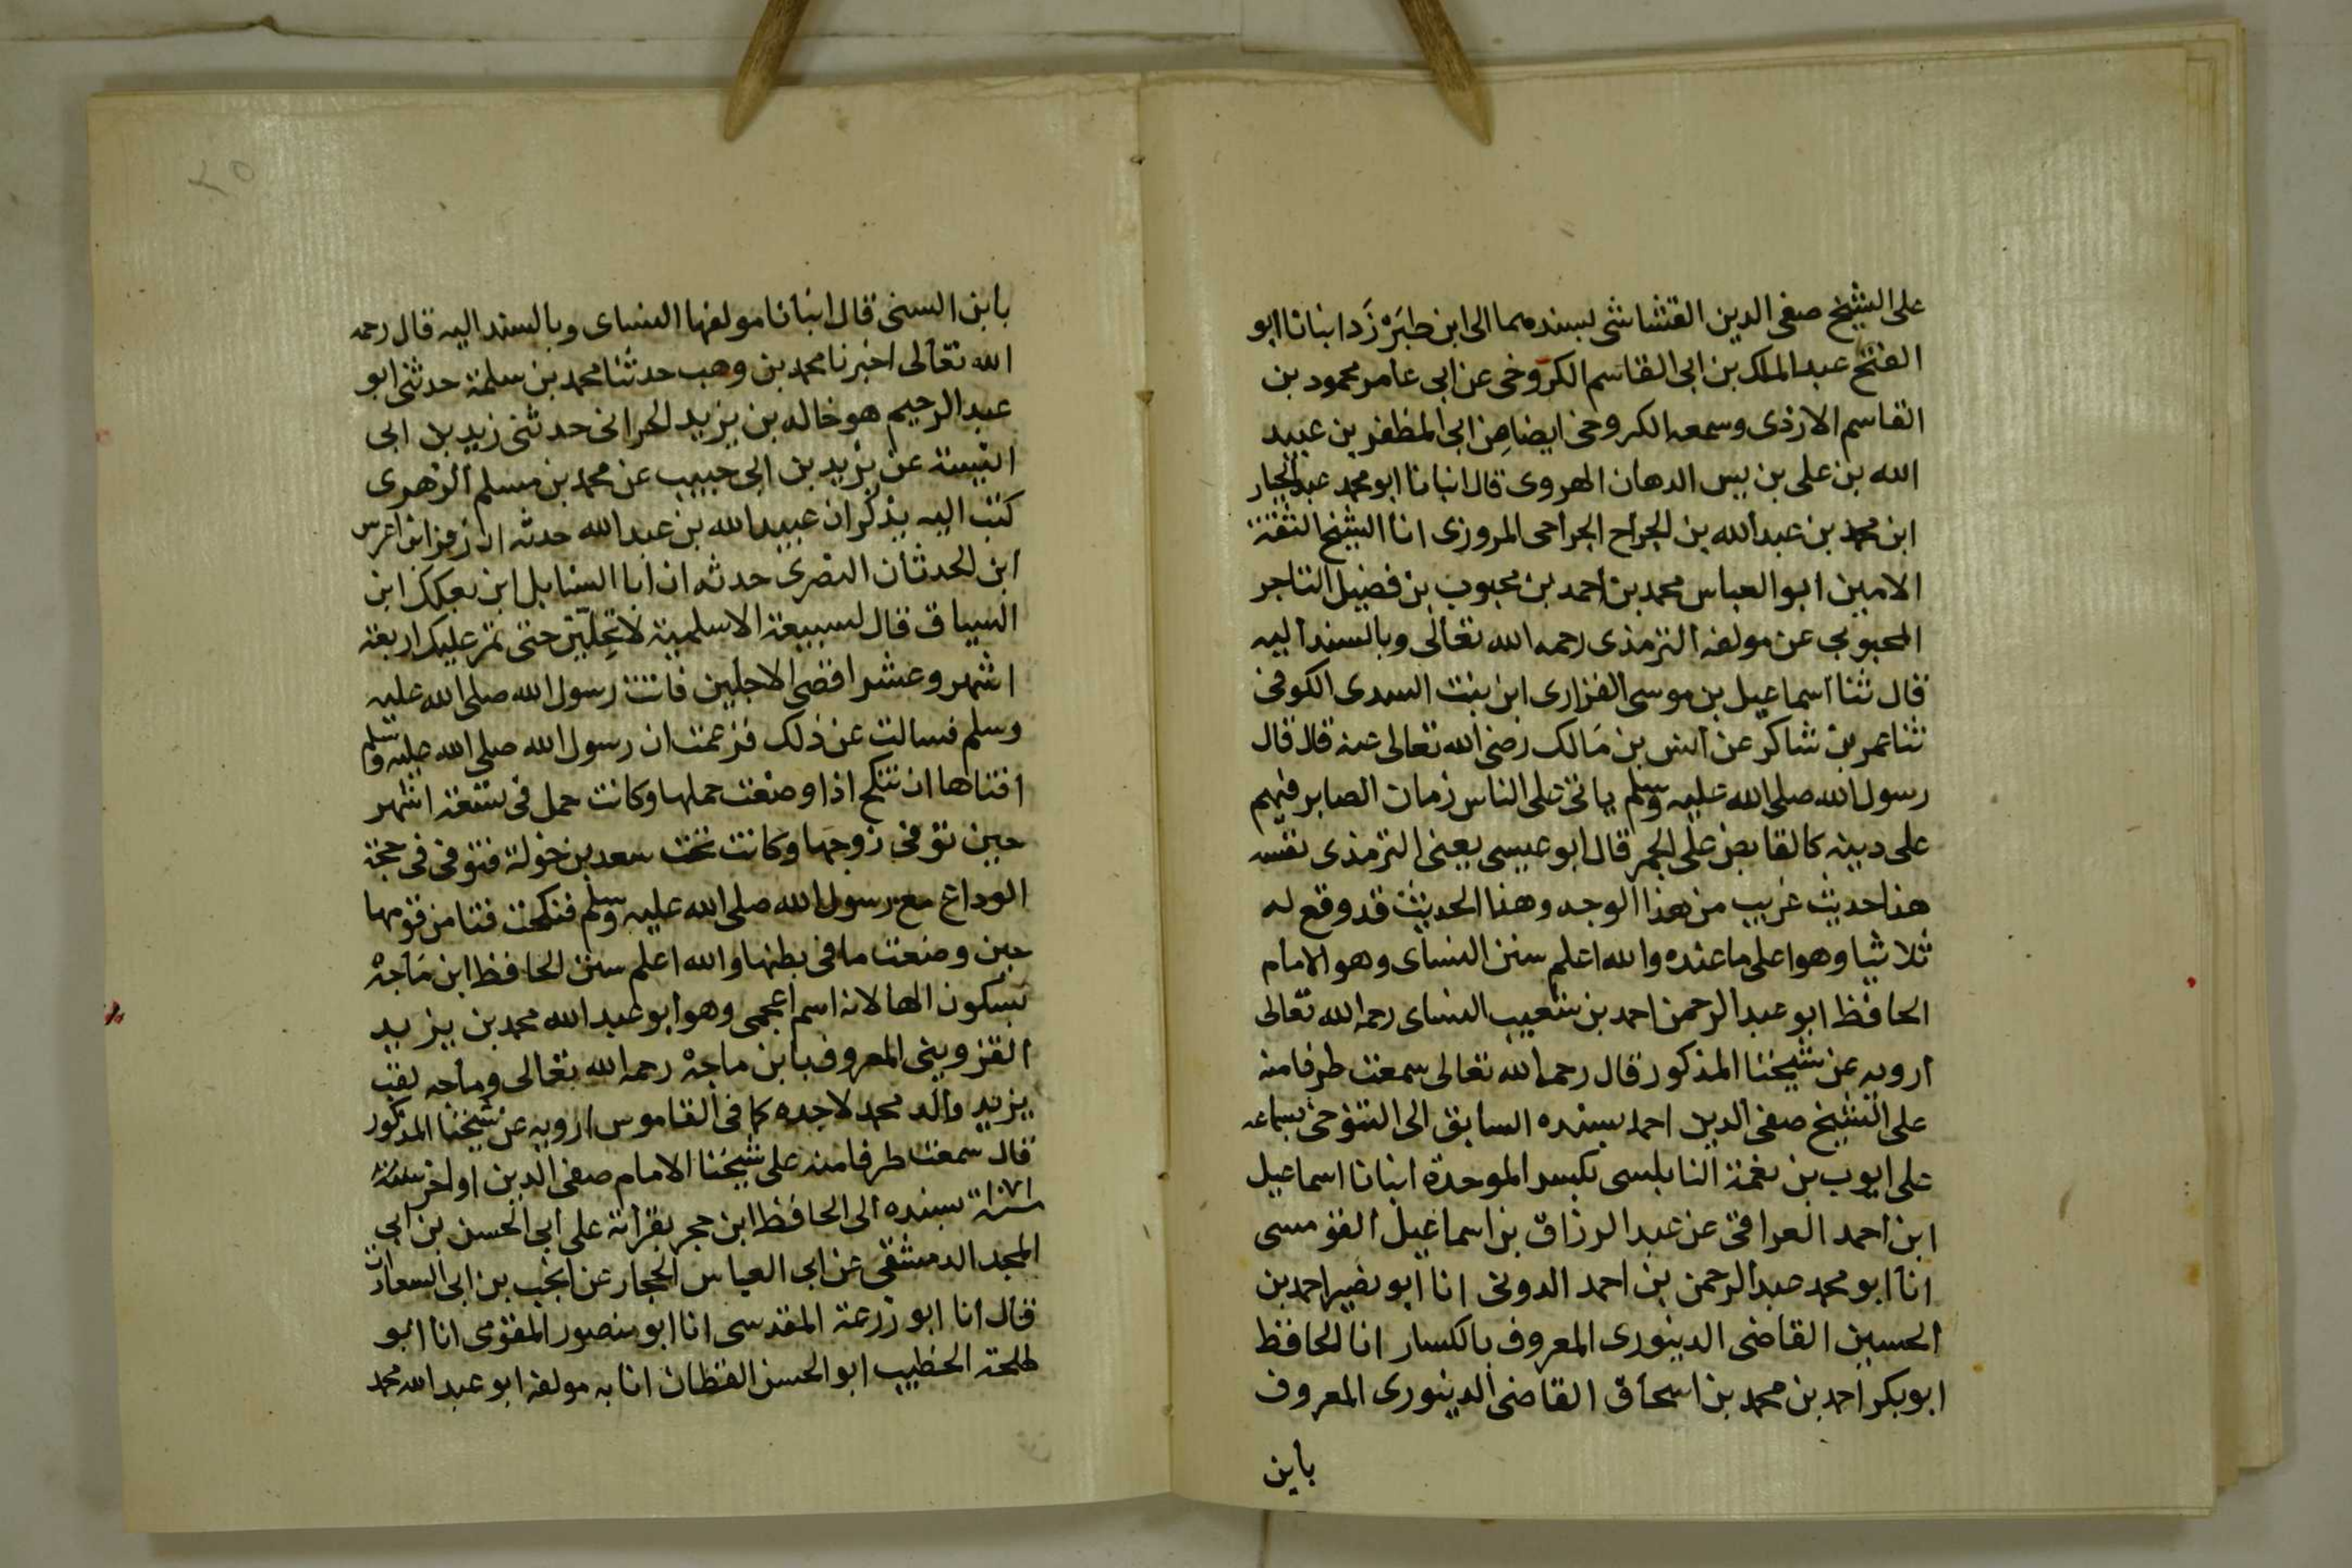 على الشيخ صفى الدين القشاشى بسندهما الى ابن طبَرْزَد انبانا ابو
الفتح عبد الملك بن ابى القاسم الكروخى عن ابى عامر محمود بن
القاسم الازدى وسمعه الكروخى ايضا من ابى المظفر بن عبيد
الله بن على بن يس الدهان الهروى قال انبانا ابو محمد عبد الجبار
ابن محمد بن عبد الله بن الجراح الجراحى المروزى انا الشيخ الثقة
الامين ابو العباس محمد بن احمد بن محبوب بن فضيل التاجر
المحبوبى عن مولفه الترمذى رحمه الله تعالى وبالسند اليه
قال ثنا اسماعيل بن موسى الفزارى ابن بنت السدى الكوفى
ثنا عمر بن شاكر عن انس بن مالك رضى الله تعالى عنه قال قال
رسول الله صلى الله عليه وسلم ياتى على الناس زمان الصابر فيهم
على دينه كالقابض على الجمر قال ابو عيسى يعنى الترمذى نفسه
هذا حديث غريب من هذا الوجه وهذا الحديث قد وقع له
ثلاثيا وهو اعلى ما عنده والله اعلم سنن النساى وهو الامام
الحافظ ابو عبد الرحمن احمد بن شعيب النساى رحمه الله تعالى
ارويه عن شيخنا المذكور قال رحمه الله تعالى سمعت طرفا منه
على الشيخ صفى الدين احمد بسنده السابق الى التنوخى بسماعه
على ايوب بن نعمة النابلسى بكسر الموحدة انبانا اسماعيل
ابن احمد العراقى عن عبد الرزاق بن اسماعيل القومسى
انا ابو محمد عبد الرحمن بن احمد الدونى انا ابو نصير احمد بن
الحسين القاضى الدينورى المعروف بالكسار انا الحافظ
ابو بكر احمد بن محمد بن اسحاق القاضى الدينورى المعروف
بابن
٢٥
بابن السنى قال انبانا مولفها النساى وبالسند اليه قال رحمه
الله تعالى اخبرنا محمد بن وهب حدثنا محمد بن سلمة حدثنى ابو
عبد الرحيم هو خالد بن يزيد الحرانى حدثنى زيد بن ابى
انيسة عن يزيد بن ابى حبيب عن محمد بن مسلم الزهرى
كتب اليه يذكر ان عبيد الله بن عبد الله حدثه ان زفر ابن اوس
ابن الحدثان النصرى حدثه ان ابا السنابل ابن بعكك ابن
السباق قال لسبيعة الاسلمية لا تحلّين حتى تمر عليك اربعة
اشهر وعشرا اقصى الاجلين فاتت رسول الله صلى الله عليه
وسلم فسالت عن ذلك فزعمت ان رسول الله صلى الله عليه وسلم
افتاها ان تنكح اذا وضعت حملها وكانت حمل فى تسعة اشهر
حين توفى زوجها وكانت تحت سعد بن خولة فتوفى فى حجة
الوداع مع رسول الله صلى الله عليه وسلم فنكحت فتا من قومها
حين وضعت ما فى بطنها والله اعلم سنن الحافظ ابن مَاجهْ
بسكون الها لانه اسم اعجمى وهو ابو عبد الله محمد بن يزيد
القزوينى المعروف بابن ماجهْ رحمه الله تعالى وماجه لقب
يزيد والد محمد لا جده كما فى القاموس ارويه عن شيخنا المذكور
قال سمعت طرفا منه على شيخنا الامام صفى الدين اواخر سنة
بسنده الى الحافظ ابن حجر بقراته على ابى الحسن بن ابى
المجد الدمشقى عن ابى العباس الحجار عن انجب بن ابى السعادات
قال انا ابو زرعة المقدسى انا ابو منصور المقومى انا ابو
طلحة الخطيب ابو الحسن القطان انا به مولفه ابو عبد الله محمد